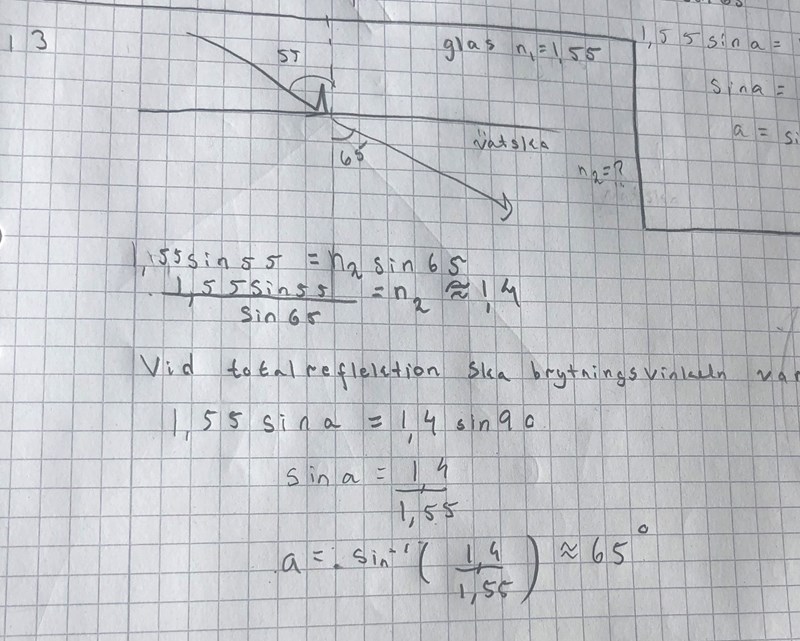 13
55
glas n₁=1,55
vätska
65
n₂=?
1,55 sin a =
sin a =
a =
1,55 sin 55 = n₂ sin 65
1,55 sin 55 / sin 65 = n₂ ≈ 1,4
Vid totalreflektion ska brytningsvinkeln
1,55 sin a = 1,4 sin 90
sin a = 1,4 / 1,55
a = sin⁻¹ (1,4 / 1,55) ≈ 65°